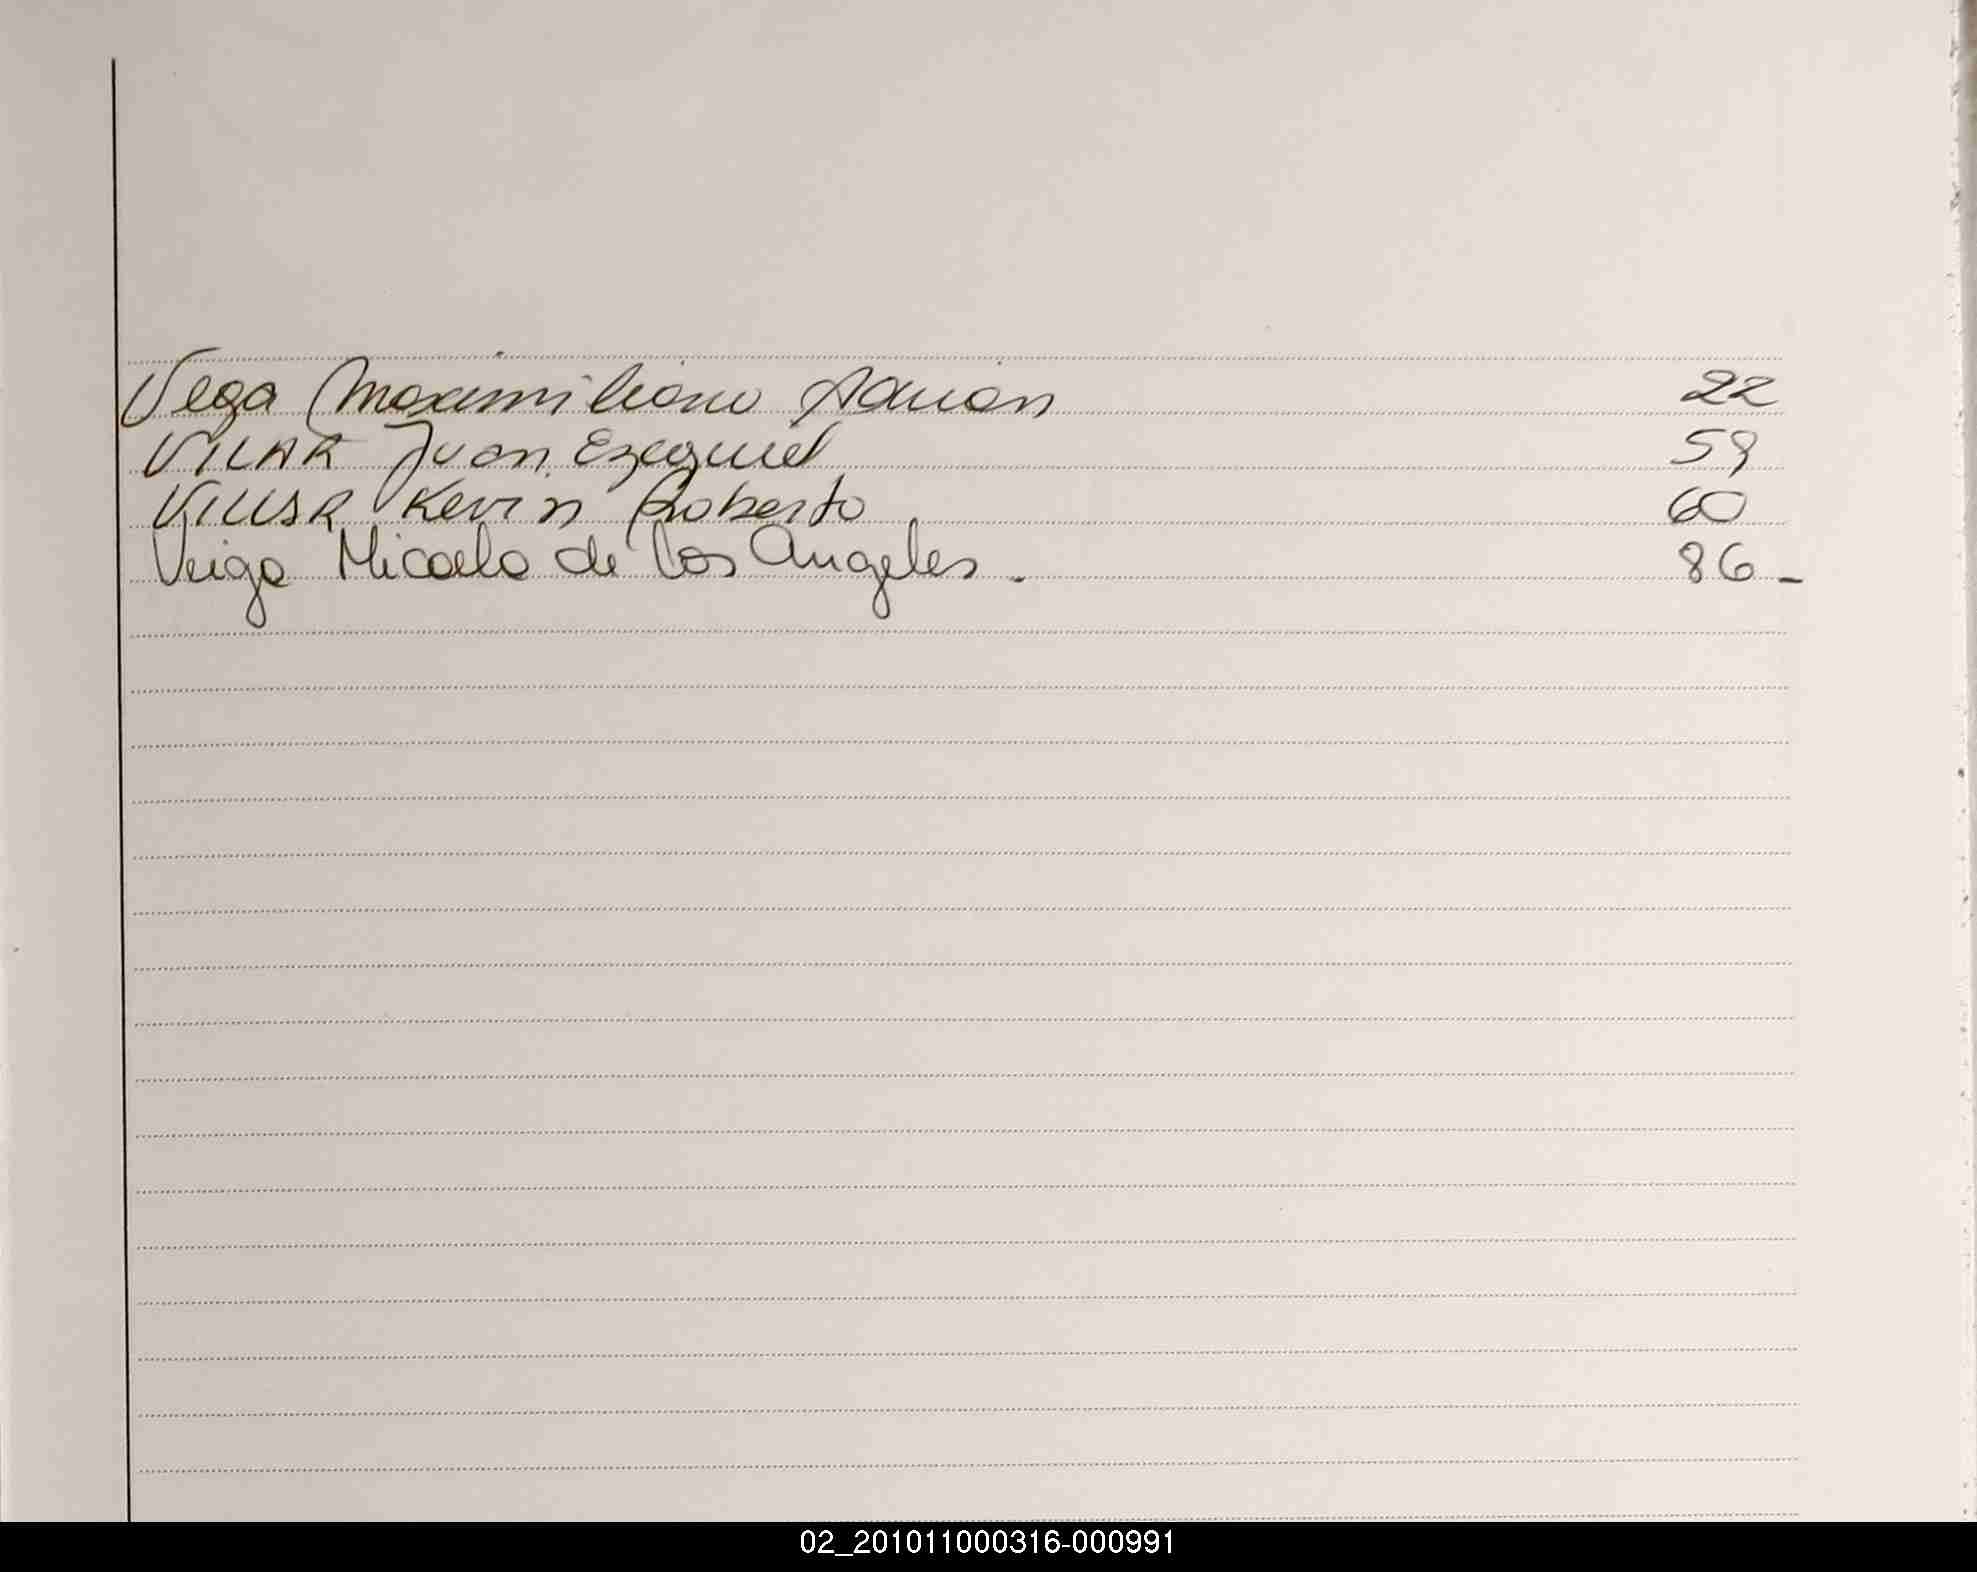 Vega Maximiliano Adrián 22
VILAR Juan Ezequiel 59
Kevin Roberto 60
Veiga Micaela de los Angeles. 86-
02_201011000316-000991